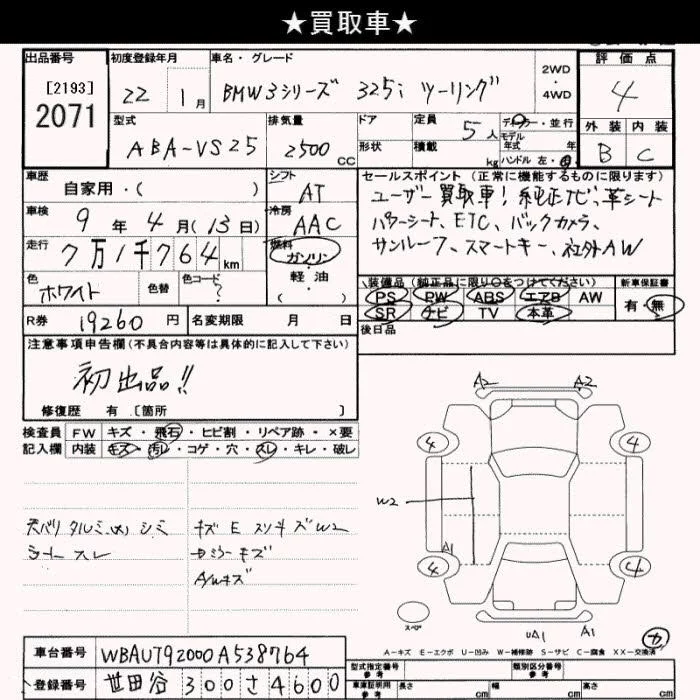 ★買取車★
出品番号 初度登録年月 車名・グレード 評価点
[2193]
2071
22 1月 BMW3シリーズ 325i ツーリング
2WD
・
4WD
4
型式 排気量 ドア 定員 ディーラー・並行 外装 内装
ABA-VS25 2500CC 形状 積載 5人 kg
モデル年式 年
ハンドル 左・右
B C
車歴 自家用・( )
シフト AT
車検 9年4月(13日)
冷房 AAC
走行 7万1千764km
燃料 ガソリン
軽油
( )
色 ホワイト 色替 色コード ?
セールスポイント(正常に機能するものに限ります)
ユーザー買取車!純正ナビ、革シート
パワーシート、ETC、バックカメラ、
サンルーフ、スマートキー、社外AW
装備品(純正品に限り○をつけてください) 新車保証書
PS PW ABS エアB AW 有・無
SR ナビ TV 本革
R券 19260円 名変期限 月 日
後日品
注意事項申告欄(不具合内容等は具体的に記入して下さい)
初出品!!
修復歴 有[箇所 ]
検査員 FW キズ・飛石・ヒビ割・リペア跡・×要
記入欄 内装 キズ・汚レ・コゲ・穴・スレ・キレ・破レ
天バリ タルミ シミ
シート スレ
キズ E スリキズW2
ミラーキズ
A/Wキズ
A2 A2
4 4
W2
A1
4 4
スペア
UA1 A1
カ
A-キズ E-エクボ U-凹み W-補修跡 S-サビ C-腐食 XX-交換済
車台番号 WBAUT92000A538764
登録番号 世田谷 300 さ 4600
型式指定番号 参考 類別区分番号 参考
車庫証明用 参考 長さ cm 幅 cm 高さ cm